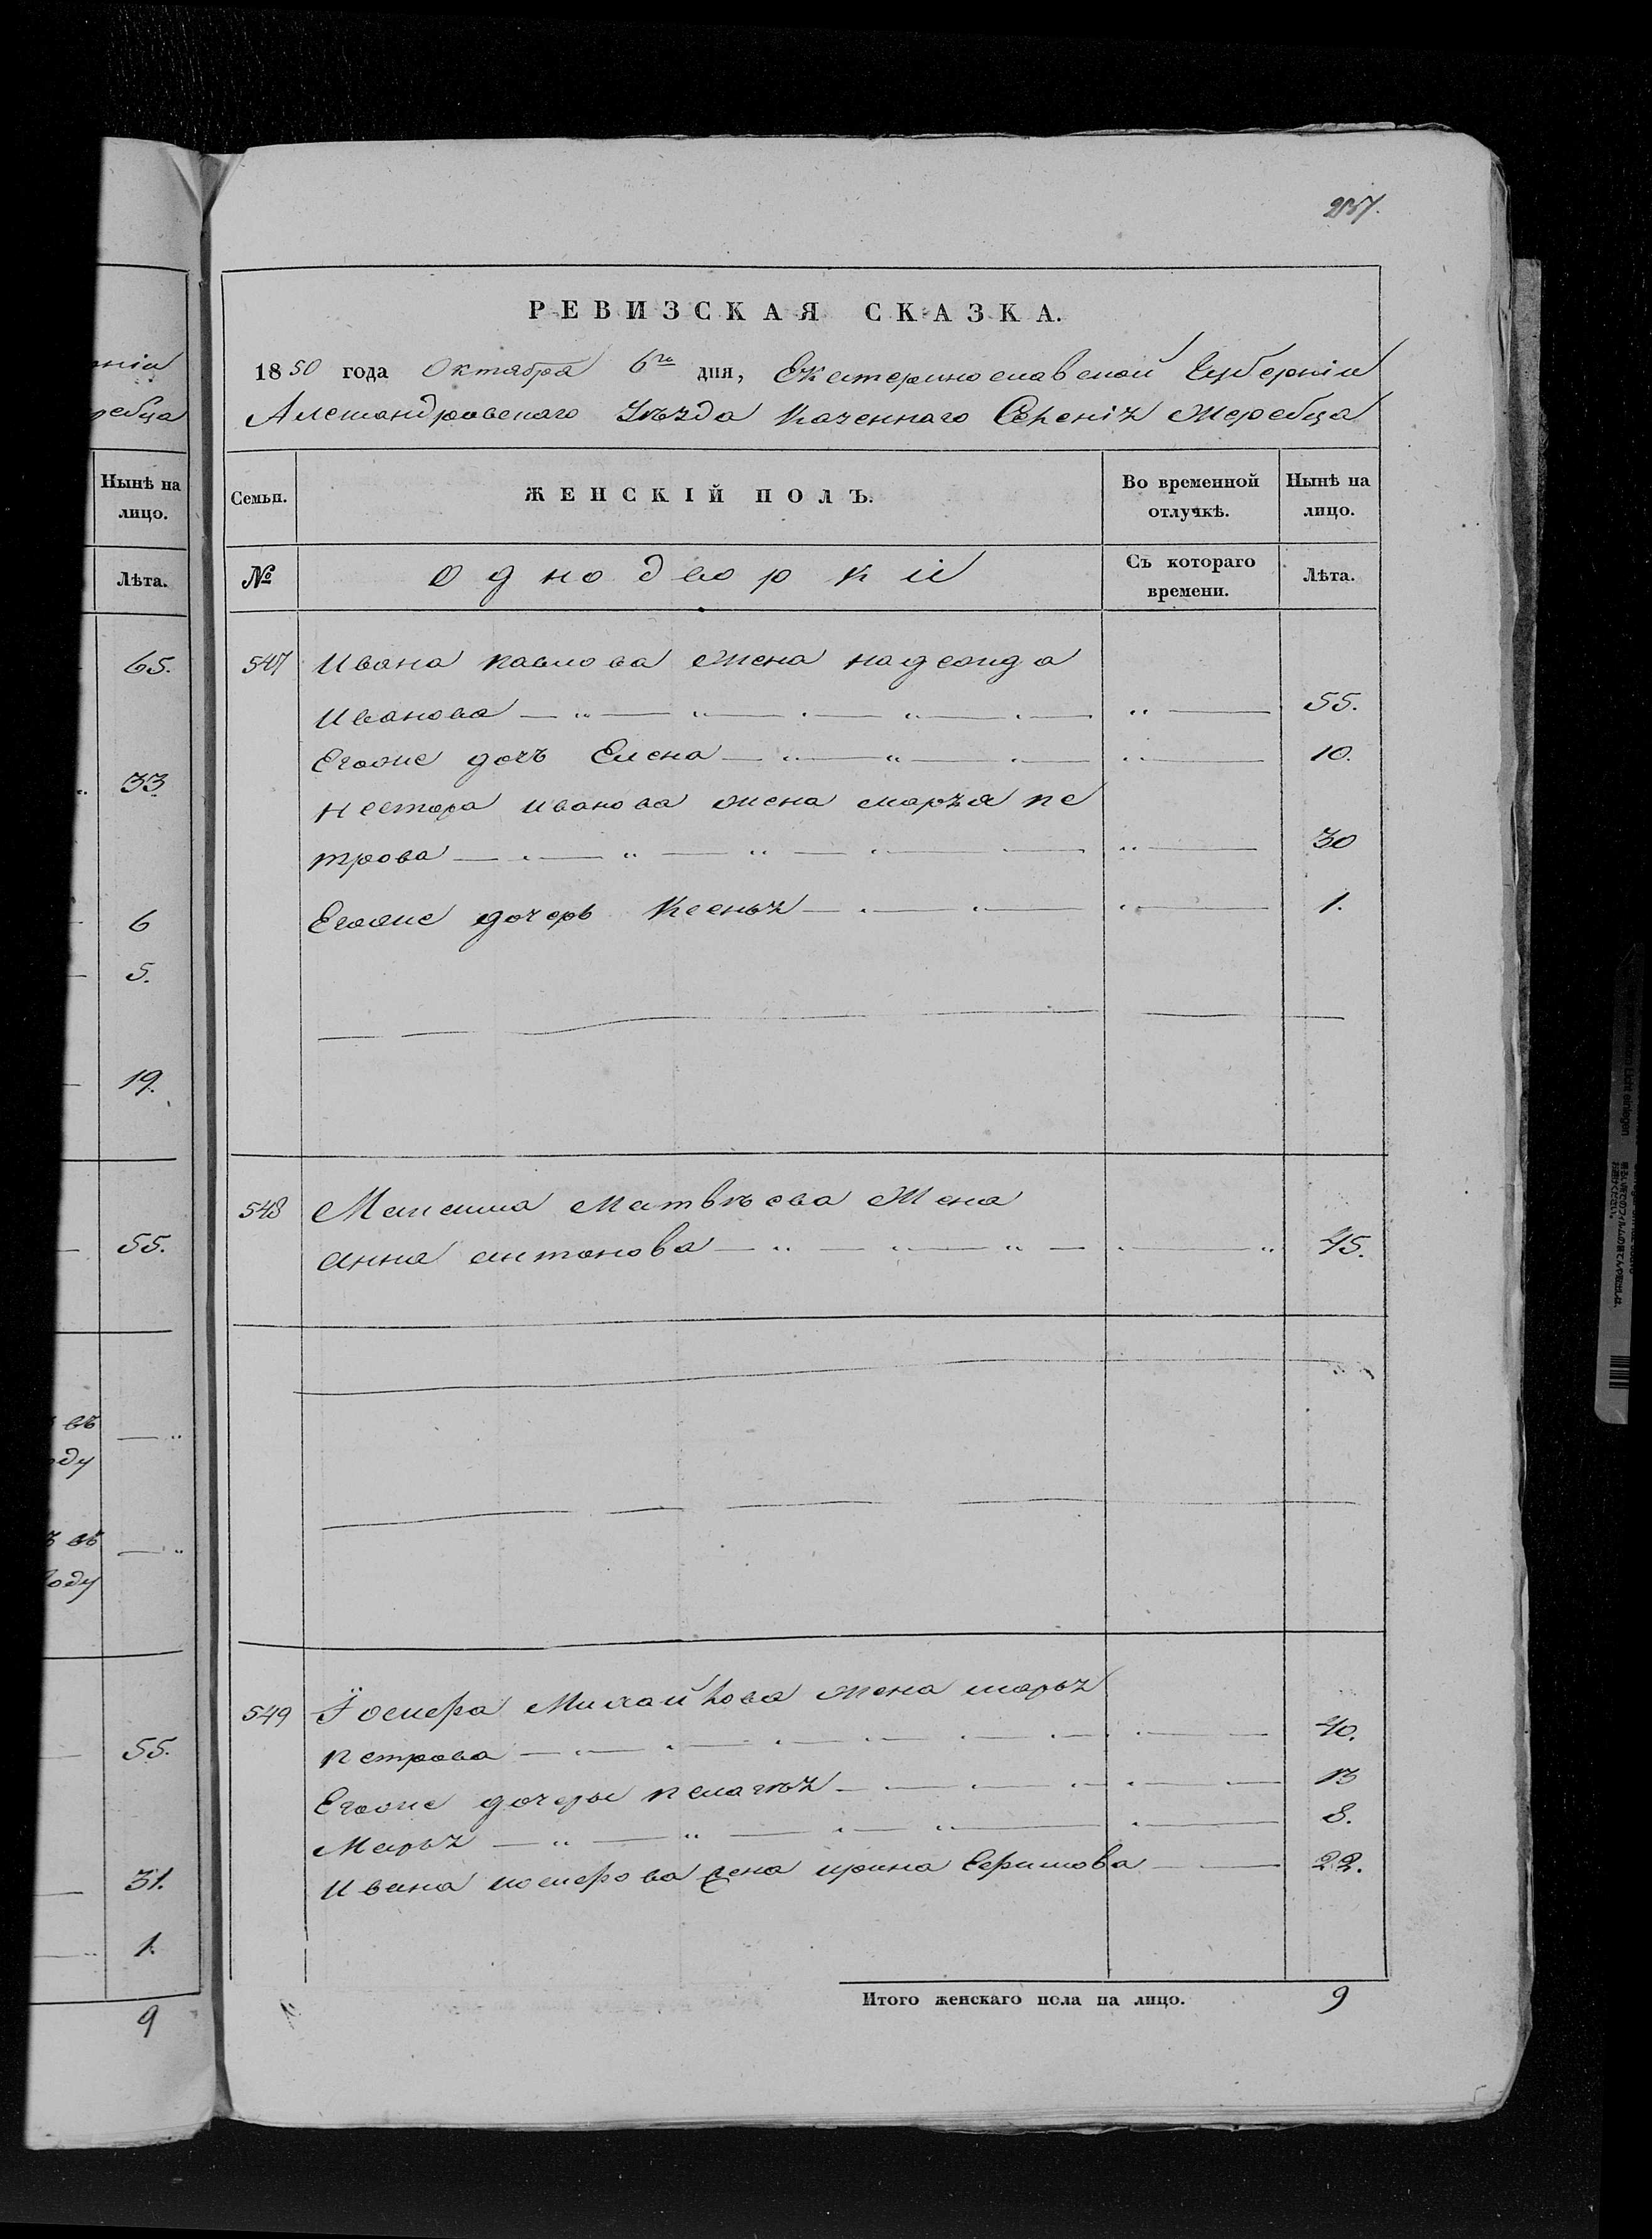 237.
ніи
ребца
Нынѣ на
лицо.
Лѣта.
65.
33
6
5.
19.
55.
въ
оду
ъ въ
году
55.
31.
1.
9
РЕВИЗСКАЯ СКАЗКА.
1850 года Октября 6го дня, Екатеринославской Губерніи
Александровскаго Уѣзда Казеннаго Селенія Жеребца
Семьи. ЖЕНСКІЙ ПОЛЪ. Во временной отлучкѣ. Нынѣ на лицо.
№ Однодворки Съ котораго времени. Лѣта.
547 Ивана павлова жена надежда
Иванова 55.
Егоже дочь Елена 10.
нестора иванова жена марья пе
трова 30
Егоже дочерь Ксенья 1.
548 Максима Матвѣева Жена
анна антонова 45.
549 Іосифа Михайлова жена марья
петрова 40.
Егоже дочеры пелагѣя 13
Марья 8.
Ивана иосифова жена ирина Ефимова 22.
Итого женскаго пола на лицо. 9